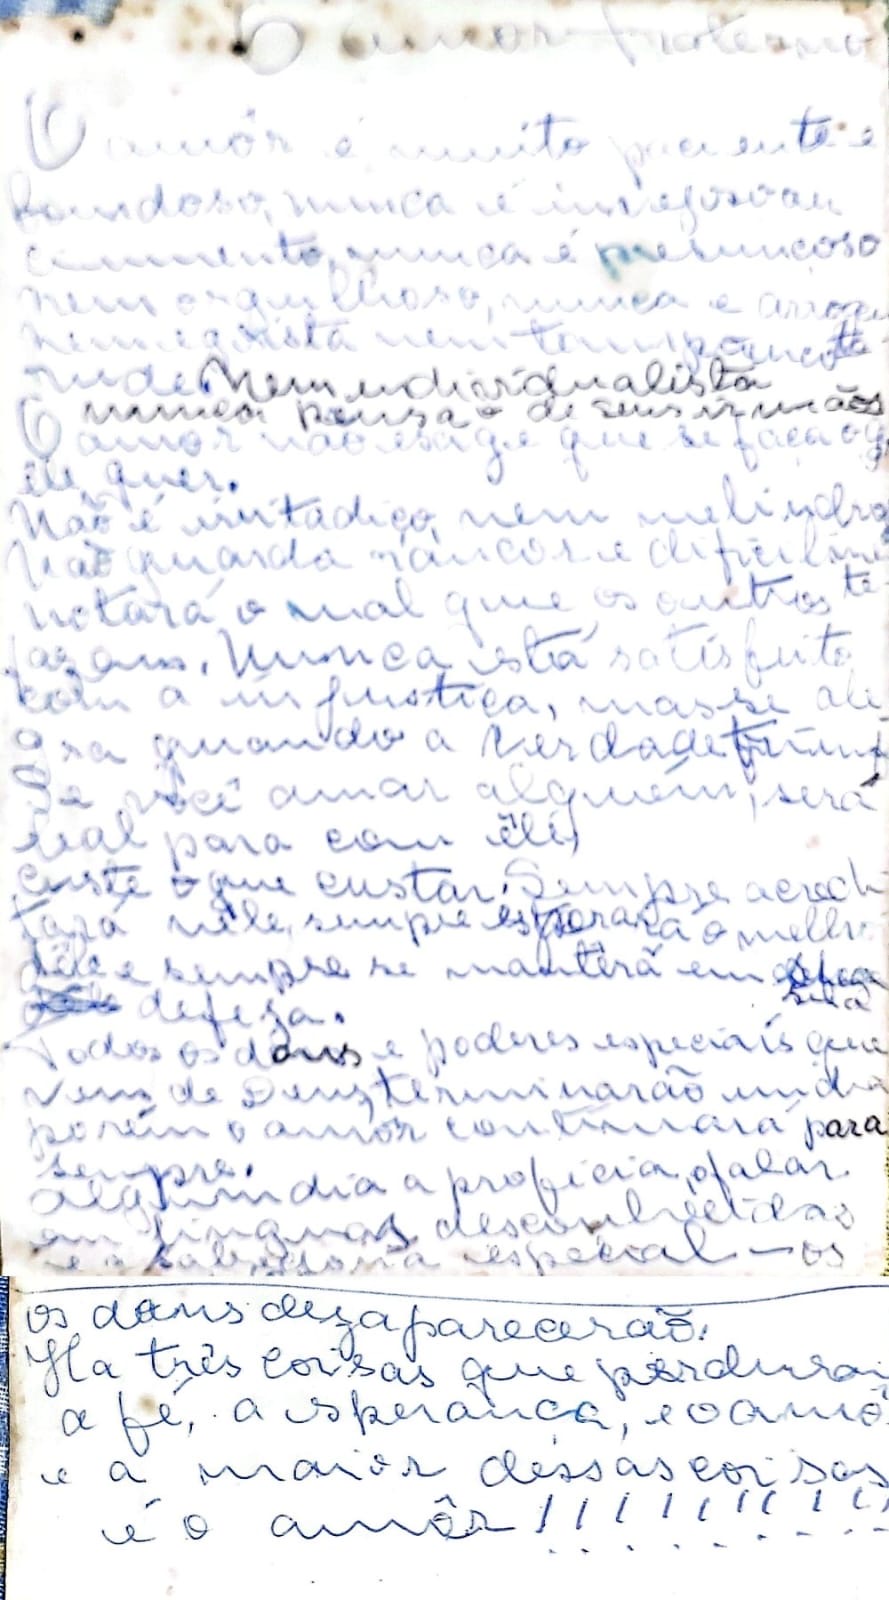 O amor fraterno
O amôr é muito paciente e
bondoso, nunca é invejoso ou
ciumento, nunca é presunçoso
nem orgulhoso, nunca é arrogan
nem egoista nem tampouco
rude. Nem individualista
nunca pensa de seus irmãos
O amor não exige que se faça o q
ele quer.
Não é irritadiço, nem melindro
Não guarda râncor e dificilme
notará o mal que os outros te
fazem. Nunca está satisfeito
com a injustiça, mas se ale
gra quando a verdade triunf
Se você amar alguém, será
leal para com êle,
custe o que custar. Sempre acredi
tará nêle, sempre esperará o melho
dêle e sempre se manterá em
sua
defeza.
Todos os dons e poderes especiais que
vem de Deus, terminarão um dia
porém o amôr continuará para
sempre.
Algum dia a proficia, o falar
em linguas desconhecidas
e a sabedoria especial — os
os dons dezaparecerão.
Ha três coisas que perdurai
a fé, a esperança, e o amô
e a maior dessas coisas
é o amôr!!!!!!!!!!